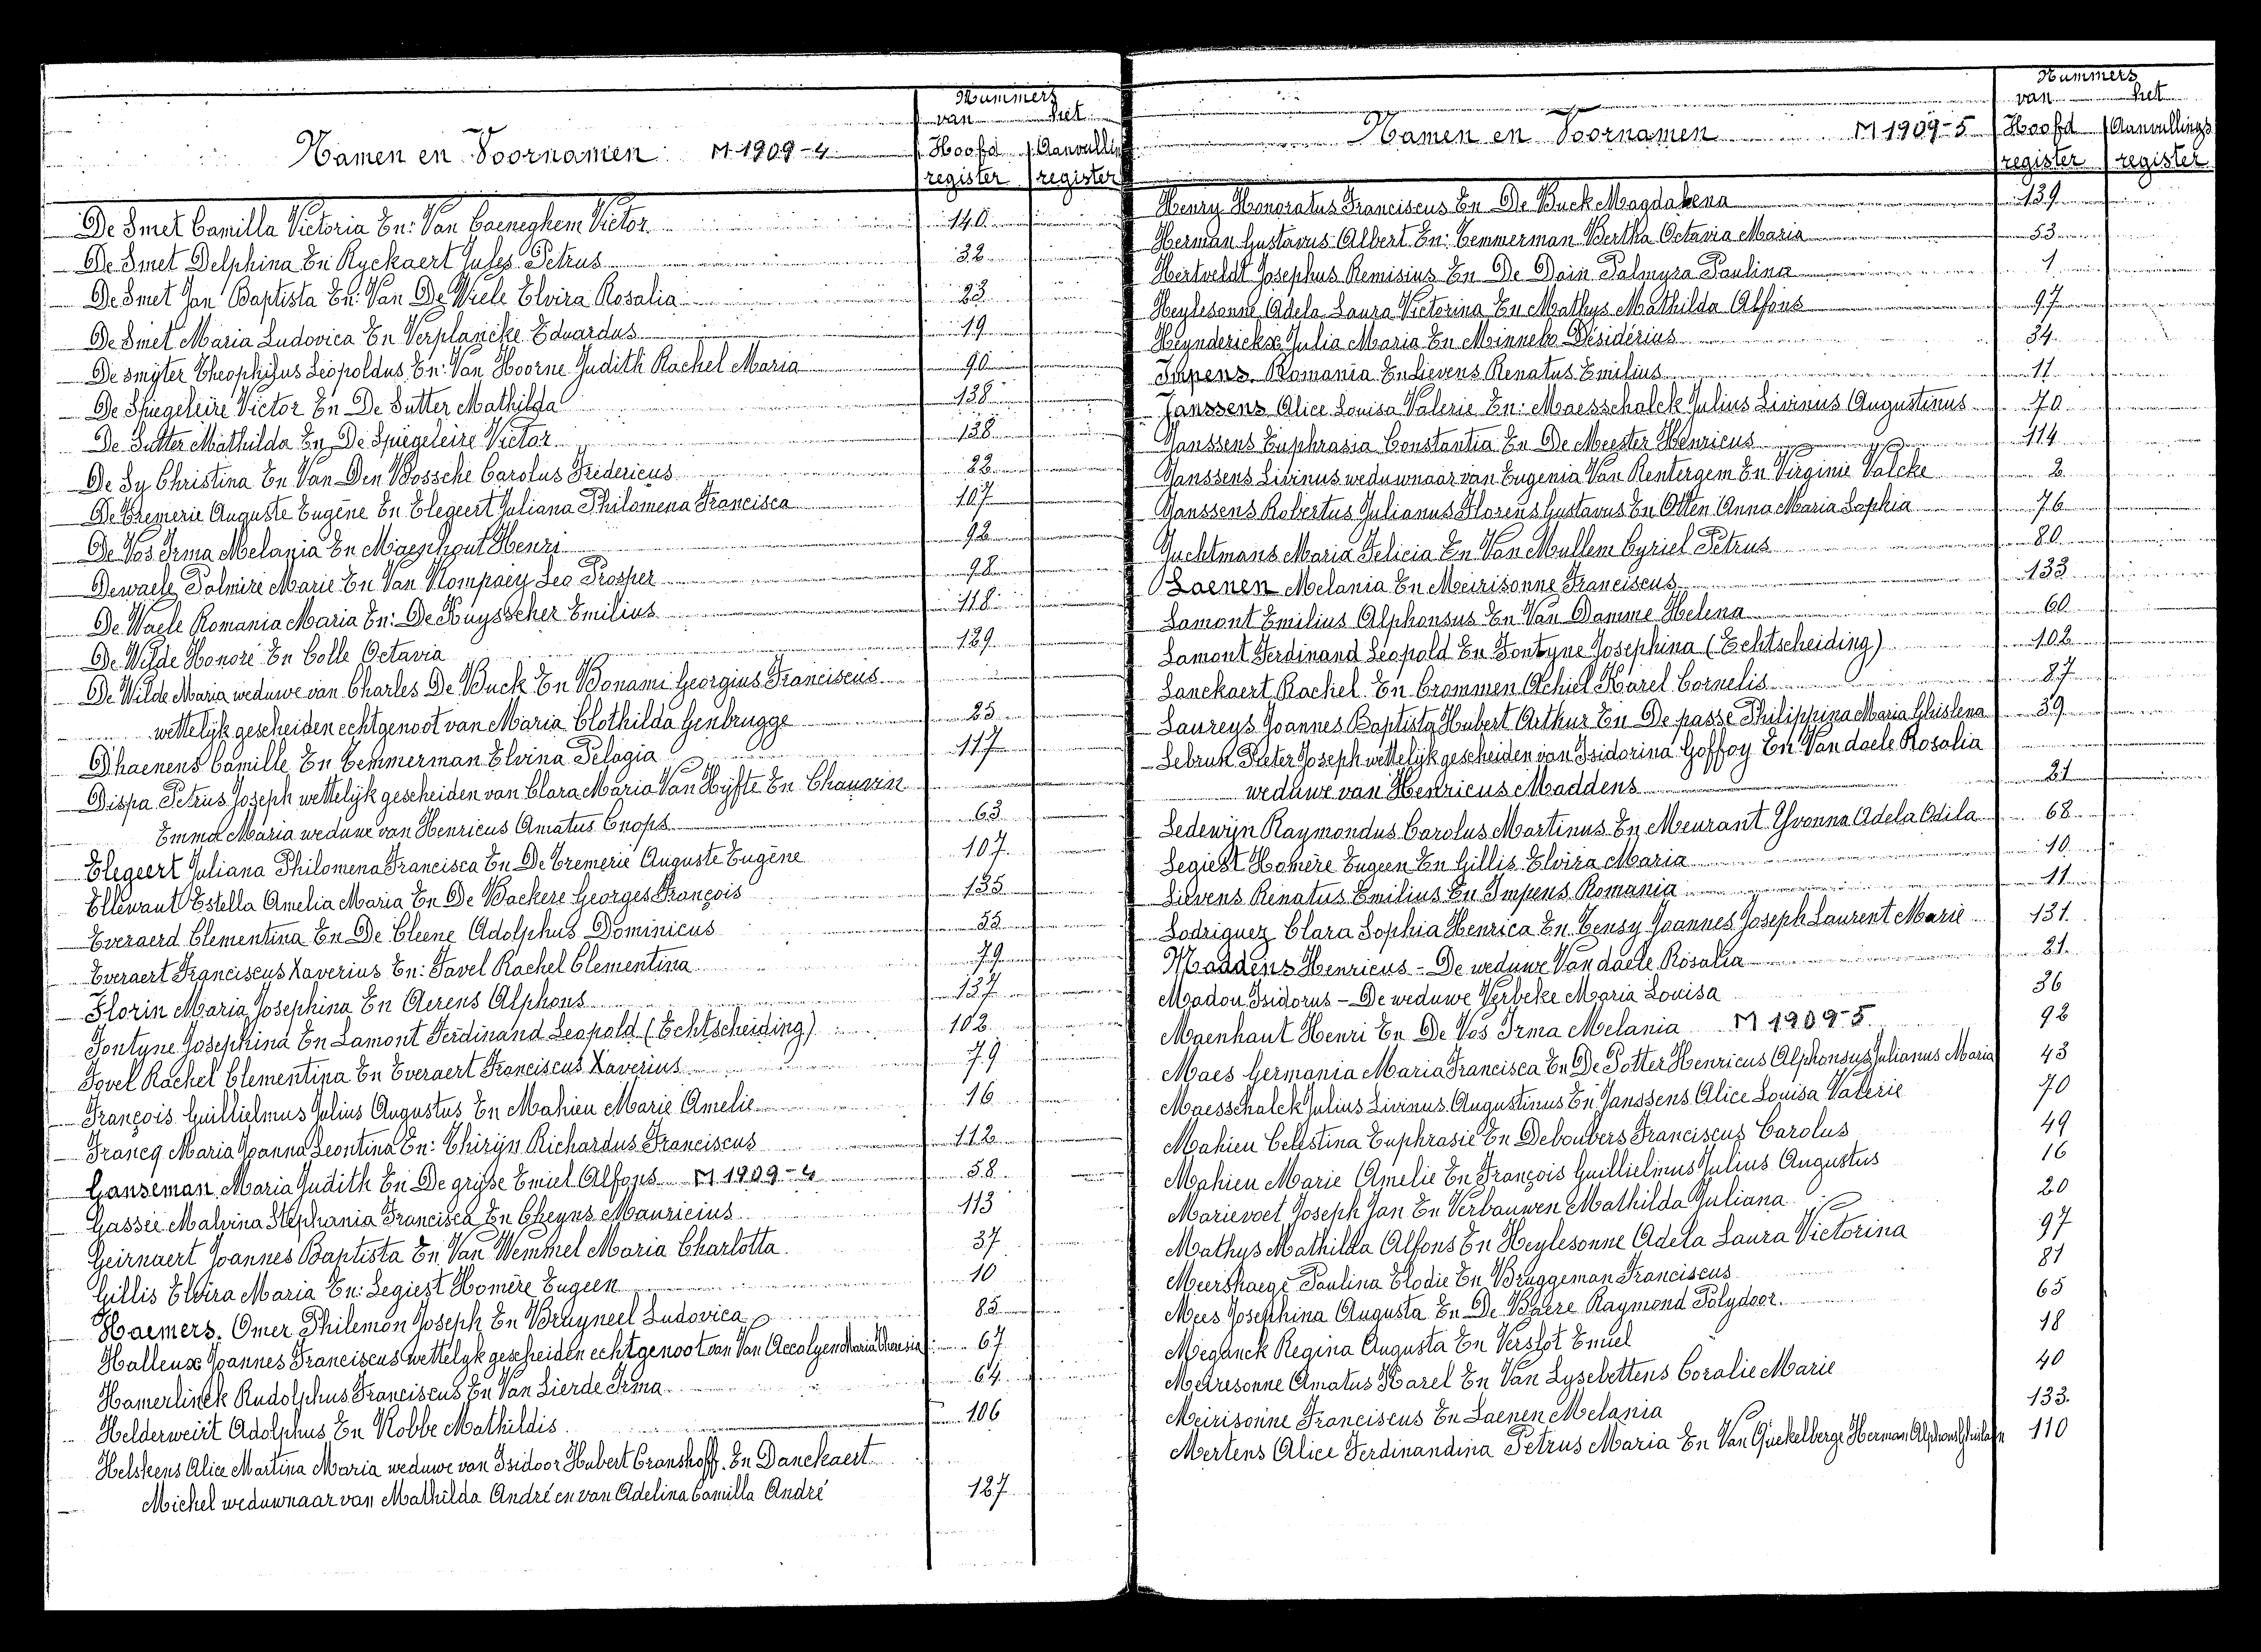 Nummers
van het
Namen en Voornamen M 1909-4 Hoofd Aanvullin
register register
De Smet Camilla Victoria En: Van Caeneghem Victor 140
De Smet Delphina En Ryckaert Jules Petrus 32
De Smet Jan Baptista En: Van De Wiele Elvira Rosalia 23
De Smet Maria Ludovica En Verplancke Eduardus 19
De Smyter Theophilus Leopoldus En: Van Hoorne Judith Rachel Maria 90
De Spiegeleire Victor En De Sutter Mathilda 138
De Sutter Mathilda En De Spiegeleire Victor 138
De Sy Christina En Van Den Bossche Carolus Fredericus 22
De Tremerie Auguste Eugène En Elegeert Juliana Philomena Francisca 107
De Vos Irma Melania En Maenhout Henri 92
Dewaele Palmire Marie En Van Kompaey Leo Prosper 98
De Waele Romania Maria En: De Kuysscher Emilius 118
De Wilde Honoré En Colle Octavia 129
De Wilde Maria weduwe van Charles De Buck En Bonami Georgius Franciscus
wettelijk gescheiden echtgenoot van Maria Clothilda Genbrugge 25
Dhaenens Camille En Temmerman Elvina Pelagia 117
Dispa Petrus Joseph wettelijk gescheiden van Clara Maria Van Hyfte En Chauvin
Emma Maria weduwe van Henricus Amatus Cnops 63
Elegeert Juliana Philomena Francisca En De Tremerie Auguste Eugène 107
Ellewaut Estella Amelia Maria En De Backere Georges François 135
Everaerd Clementina En De Cleene Adolphus Dominicus 55
Everaert Franciscus Xaverius En: Favel Rachel Clementina 79
Florin Maria Josephina En Aerens Alphons 137
Fontyne Josephina En Lamont Ferdinand Leopold (Echtscheiding) 102
Fovel Rachel Clementina En Everaert Franciscus Xaverius 79
François Guillielmus Julius Augustus En Mahieu Marie Amelie 16
Francq Maria Joanna Leontina En: Thirijn Richardus Franciscus 112
Ganseman Maria Judith En De gryse Emiel Alfons M 1909-4 58
Gassée Malvina Stephania Francisca En Cheyns Mauricius 113
Geirnaert Joannes Baptista En Van Wemmel Maria Charlotta 37
Gillis Elvira Maria En: Legiest Homère Eugeen 10
Haemers Omer Philemon Joseph En Bruyneel Ludovica 85
Halleux Joannes Franciscus wettelyk gescheiden echtgenoot van Van Accolyen Maria Tharsia 67
Hamerlinck Rudolphus Franciscus En Van Lierde Irma 64
Helderweirt Adolphus En Robbe Mathildis 106
Helskens Alice Martina Maria weduwe van Isidoor Hubert Cranshoff En Danckaert
Michel weduwnaar van Mathilda André en van Adelina Camilla André 127
Nummers
van het
Namen en Voornamen M 1909-5 Hoofd Aanvullings
register register
Henry Honoratus Franciscus En De Buck Magdalena 139
Herman Gustavus Albert En: Temmerman Bertha Octavia Maria 53
Hertveldt Josephus Remisius En De Dain Palmyra Paulina 1
Heylesonne Adela Laura Victorina En Mathys Mathilda Alfons 97
Heynderickx Julia Maria En Minnebo Désidérius 34
Impens Romania En Lievens Renatus Emilius 11
Janssens Alice Louisa Valerie En: Maesschalck Julius Livinus Augustinus 70
Janssens Euphrasia Constantia En De Meester Henricus 114
Janssens Livinus weduwnaar van Eugenia Van Rentergem En Virginie Valcke 2
Janssens Robertus Julianus Florens Gustavus En Otten Anna Maria Sophia 76
Juchtmans Maria Felicia En Van Mullem Cyriel Petrus 80
Laenen Melania En Meirisonne Franciscus 133
Lamont Emilius Alphonsus En Van Damme Helena 60
Lamont Ferdinand Leopold En Fontyne Josephina (Echtscheiding) 102
Lanckaert Rachel En Crommen Achiel Karel Cornelis 87
Laureys Joannes Baptista Hubert Arthur En De passe Philippina Maria Ghislena 39
Lebrun Pieter Joseph wettelijk gescheiden van Isidorina Goffoy En Vandaele Rosalia
weduwe van Henricus Maddens 21
Ledewijn Raymondus Carolus Martinus En Meurant Yvonna Adela Odila 68
Legiest Homère Eugeen En Gillis Elvira Maria 10
Lievens Renatus Emilius En Impens Romania 11
Lodriguez Clara Sophia Henrica En Tensy Joannes Joseph Laurent Marie 131
Maddens Henricus - De weduwe Van daele Rosalia 21
Madou Isidorus - De weduwe Verbeke Maria Louisa 36
Maenhaut Henri En De Vos Irma Melania M 1909-5 92
Maes Germania Maria Francisca En De Potter Henricus Alphonsus Julianus Maria 43
Maesschalck Julius Livinus Augustinus En Janssens Alice Louisa Valerie 70
Mahieu Celestina Euphrasie En Debouvers Franciscus Carolus 49
Mahieu Marie Amelie En François Guillielmus Julius Augustus 16
Marievoet Joseph Jan En Verbauwen Mathilda Juliana 20
Mathys Mathilda Alfons En Heylesonne Adela Laura Victorina 97
Meershaege Paulina Elodie En Bruggeman Franciscus 81
Mees Josephina Augusta En De Baere Raymond Polydoor 65
Meganck Regina Augusta En Verslot Emiel 18
Meiresonne Amatus Karel En Van Lysebettens Coralie Marie 40
Meirisonne Franciscus En Laenen Melania 133
Mertens Alice Ferdinandina Petrus Maria En Van Quekelberge Herman Alphons 110